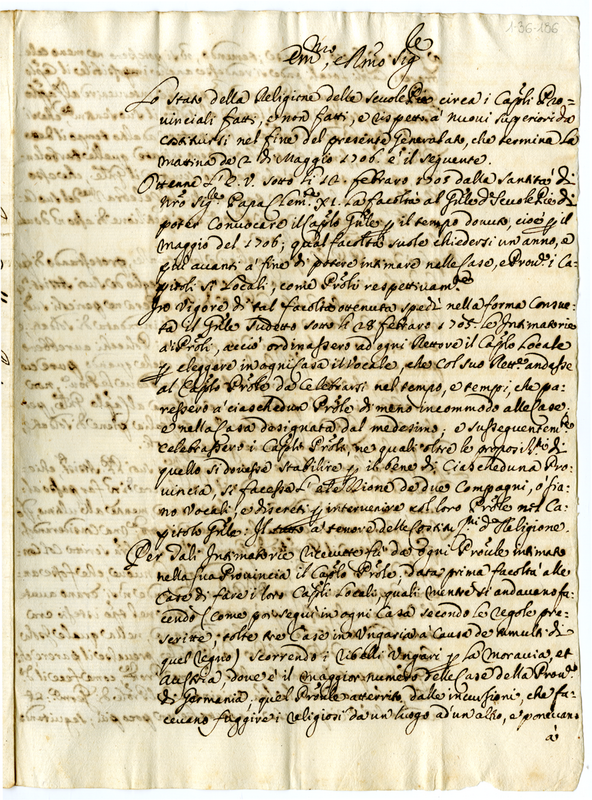 1-36-136
Em.mo, e Rmo Sig.re
Lo Stato della Religione delle Scuole Pie circa i Capli Pro=
vinciali fatti, e non fatti, e rispetto a' nuovi superiori da
costituirsi nel fine del presente Generalato, che termina La
Matina de 2 di Maggio 1706 è il seguente.
Ottenne L'E. V. sotto li 12 febraro 1705 dalla Santità di
Nro Sig.re Papa Clem.te XI. La facoltà al Gnle d' Scuole Pie di
poter Convocare il Caplo Gnle p il tempo dovuto, cioè p il
Maggio del 1706; qual facoltà suole chiedersi un'anno, e
più avanti à fine di potere intimare nelle Case, e Prov.e i Ca-
pitoli sì Locali, come Prôli respettivam.te
In Vigore di tal facoltà ottenuta spedì nella forma Consue-
ta il Gnle sudetto sotto li 28 febraro 1705. Le Intimatorie
a' Prôli, acciò ordinassero ad ogni Rettore il Caplo Locale
p eleggere in ogni Casa il Vocale, che col suo Rett.e andasse
al Caplo Prôle da Celebrarsi nel tempo, e tempi, che pa-
ressero a' ciaschedun Prôle di meno incommodo alle Case,
e nella Casa designata dal medesimo; e susseguentem.te
celebrassero i Capli Prôli, ne quali oltre le propos.ni di
quello si dovesse stabilire p il bene di Ciascheduna Pro
vincia, si facesse L'elezzione de due Compagni, o sia-
no Vocali, e discreti p intervenire col loro Prôle nel Ca-
pitolo Gnle: a tenore delle Costitu.ni d' Religione.
Per dali Intimatorie ricevute fù da ogni Prôle intimato
nella sua Provincia il Caplo Prôle, data prima facoltà alle
Case di fare i loro Capli Locali, quali mentre si andavano fa-
cendo (Come poi seguì in ogni Casa secondo le regole pre-
scritte, tolte tre Case in Ungaria a Causa de tumulti di
quel Regno) scorrendo i ribelli Ungari p la Moravia, et
Austria dove è il maggior numero delle Case della Prov.a
di Germania; quel Prôle atterrito dalle incursioni, che fa-
cevano fuggire i religiosi da un luogo ad un altro, e ponevano
à